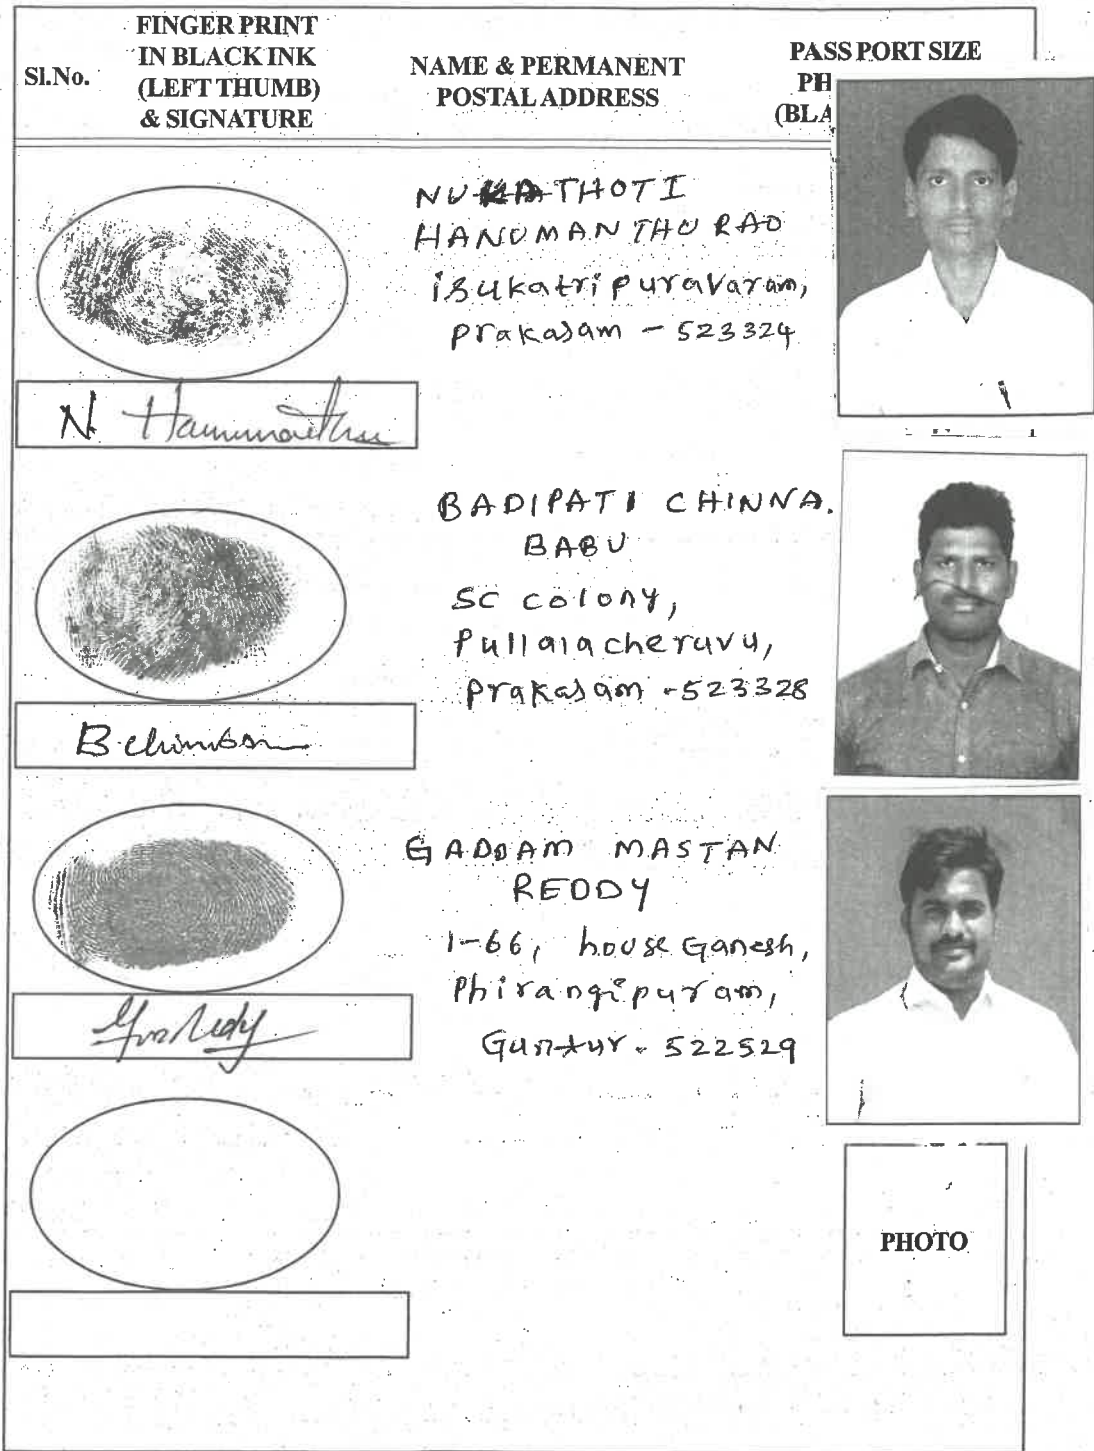 Sl.No.
FINGER PRINT
IN BLACK INK
(LEFT THUMB)
& SIGNATURE
NAME & PERMANENT
POSTAL ADDRESS
PASS PORT SIZE
PH
(BLA
NUKATHOTI
HANUMANTHU RAO
isukatripuravaram,
prakasam - 523324
N. Hanumanthu
BADIPATI CHINNA.
BABU
SC colony,
pullalacheruvu,
prakasam - 523328
GADDAM MASTAN
REDDY
1-66, house Ganesh,
Phirangipuram,
Guntur. 522529
PHOTO